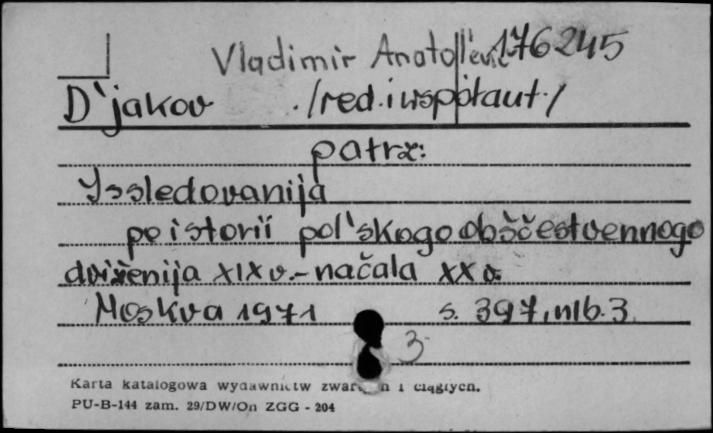 Vladimir Anatol'evič 176245
D'jakov ./red. i współaut./
patrz:
Issledovanija
po istorii pol'skogo obščestvennogo
dviženija XIX v. - načala XX v.
Moskva 1971 s. 397, nlb. 3
3
Karta katalogowa wydawnictw zwartych i ciągłych.
PU-B-144 zam. 29/DW/On ZGG - 204